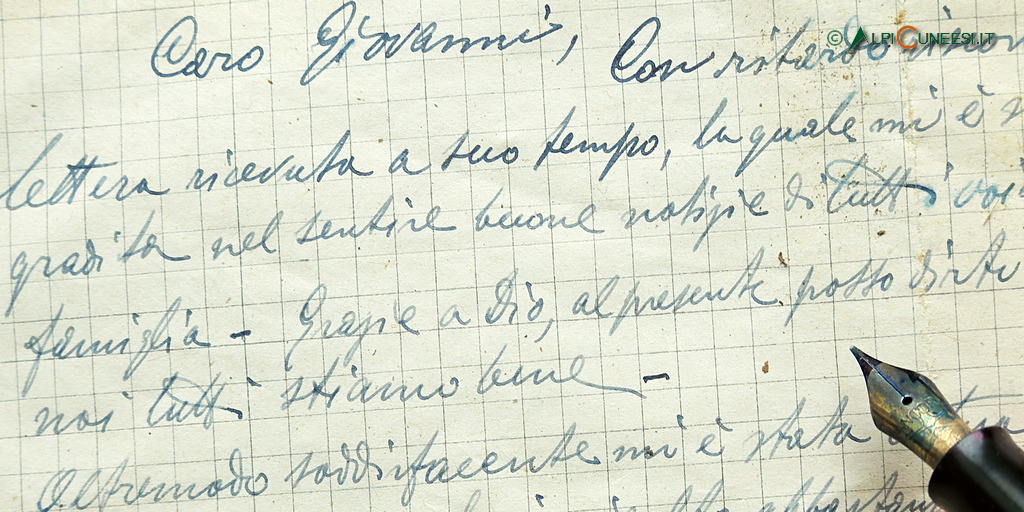 © ALPICUNEESI.IT
Caro Giovanni, Con ritardo
lettera ricevuta a suo tempo, la quale mi è
gradita nel sentire buone notizie di tutti voi
famiglia - Grazie a Dio, al presente posso dirti
noi tutti stiamo bene -
Oltremodo soddisfacente mi è stata